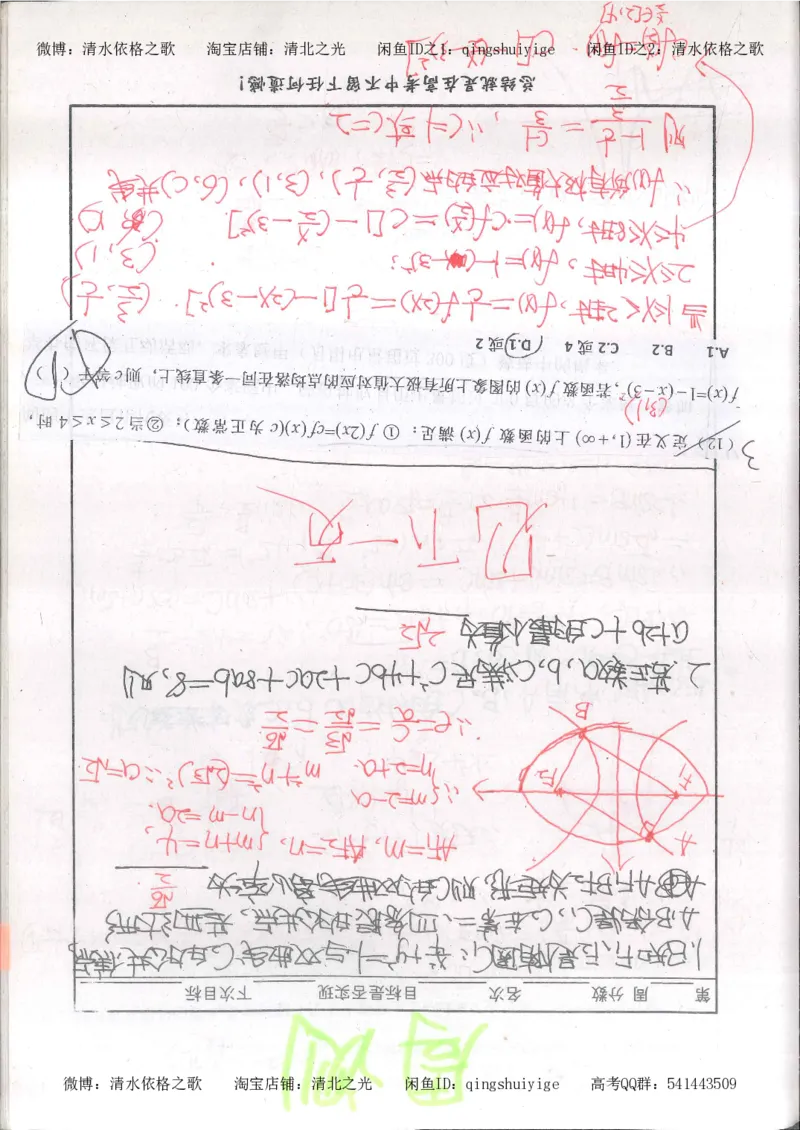 微博：清水依格之歌 淘宝店铺：清北之光 闲鱼ID之1：qingshuiyige 闲鱼ID之2：清水依格之歌
第 周 分数 名次 目标是否实现 下次目标
1.如F₁,F₂是椭圆C₁: x²/4+y²=1与双曲线C₂的公共焦点,
A.B分别是C₁,C₂在第二、四象限的公共点,若四边形
AF₁BF₂为矩形,则C₂的双曲线离心率为 √6/2
AF₁=m, AF₂=n, {m+n=4,
n-m=2a.
∴{m=2-a
n=2+a
m²+n²=(2√3)² ∴a=√2
∴e=c/a=√3/√2=√6/2
A
F₁
F₂
B
2.若正数a,b,c满足c²+4bc+2ac+8ab=8,则
a+2b+c的最小值为 2√2
(12) 定义在(1,+∞)上的函数 f(x) 满足：① f(2x)=cf(x)(c 为正常数)；②当2≤x≤4时，
f(x)=1-(x-3)²，若函数 f(x) 的图象上所有极大值对应的点均落在同一条直线上，则c等于（ D ）
(3,1)
A.1 B.2 C.2或4 D.1或2
当1<x<2时, f(x)=1/c f(2x)=1/c[1-(2x-3)²]. (3/2, 1/c)
2≤x≤4时, f(x)=1-(x-3)²; (3,1)
4≤x≤8时, f(x)=cf(x/2)=c[1-(x/2-3)²] (6,c)
∴f(x)所有极大值对应的点(3/2,1/c),(3,1),(6,c)共线
∴c=1或c=2
总结就是在高考中不留下任何遗憾！
微博：清水依格之歌 淘宝店铺：清北之光 闲鱼ID：qingshuiyige 高考QQ群：541443509